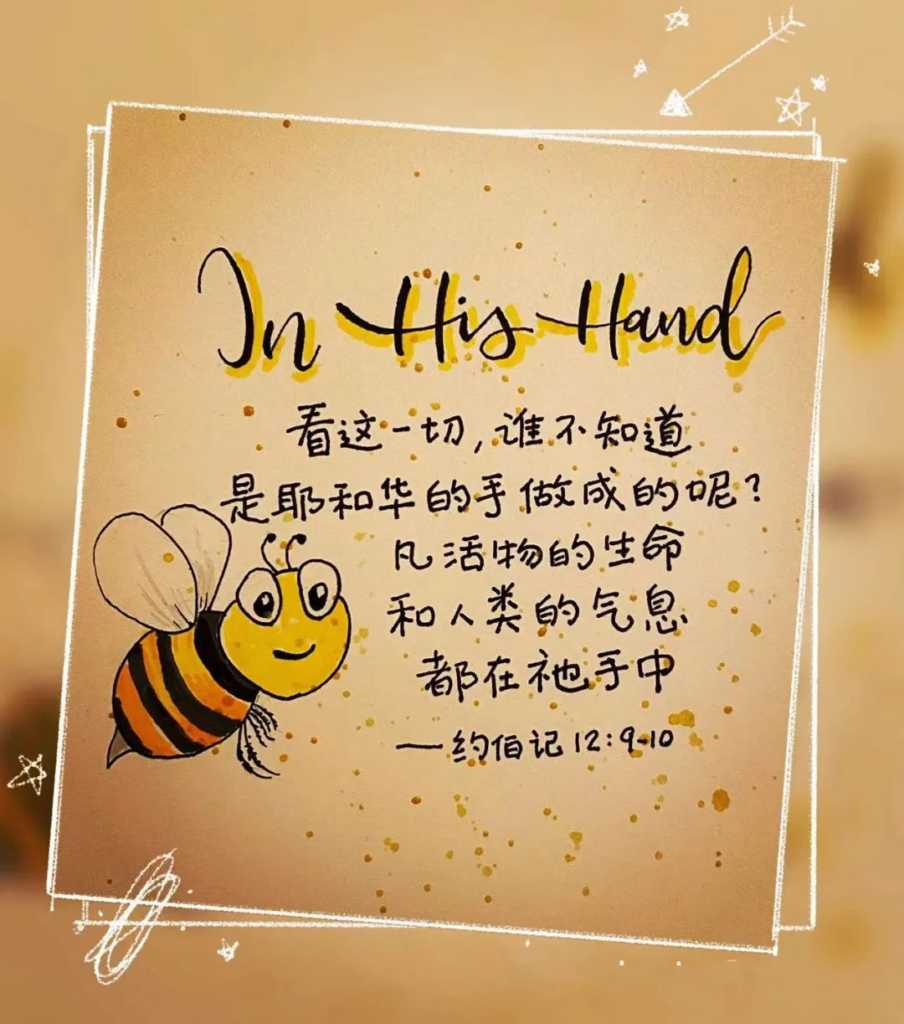 In His Hand
看这一切,谁不知道
是耶和华的手做成的呢?
凡活物的生命
和人类的气息
都在祂手中
—约伯记12:9-10